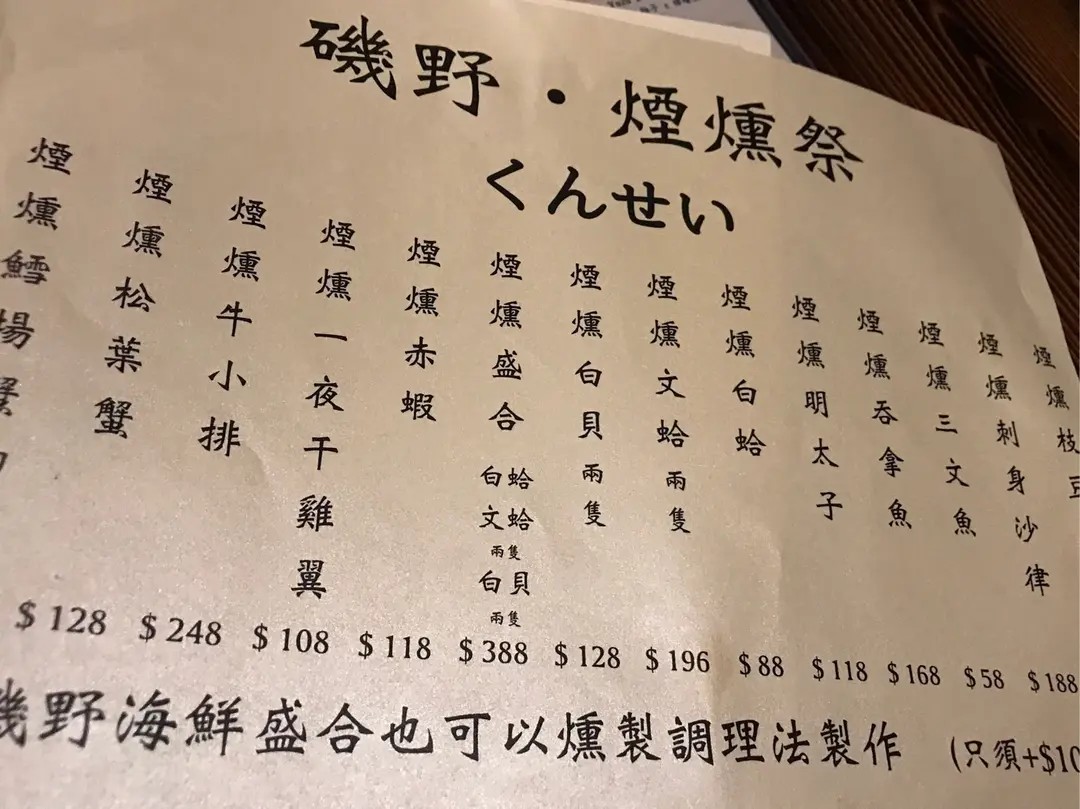 磯野・煙燻祭
くんせい
煙燻枝豆
煙燻刺身沙律
煙燻三文魚
煙燻吞拿魚
煙燻明太子
煙燻白蛤
煙燻文蛤兩隻
煙燻白貝兩隻
煙燻盛合
白蛤
文蛤
兩隻
白貝
兩隻
煙燻赤蝦
煙燻一夜干雞翼
煙燻牛小排
煙燻松葉蟹
煙燻鱈場蟹
$128 $248 $108 $118 $388 $128 $196 $88 $118 $168 $58 $188
磯野海鮮盛合也可以燻製調理法製作 (只須+$10